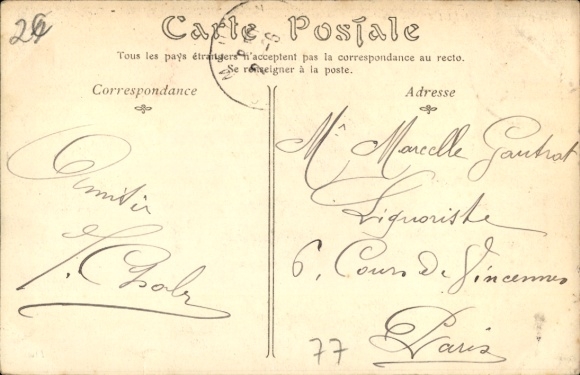 26
Carte Postale
Tous les pays étrangers n'acceptent pas la correspondance au recto.
Se renseigner à la poste.
Correspondance
Amitié
Adresse
Mr Marcelle Gautrat
Liquoriste
6, Cours de Vincennes
Paris
77